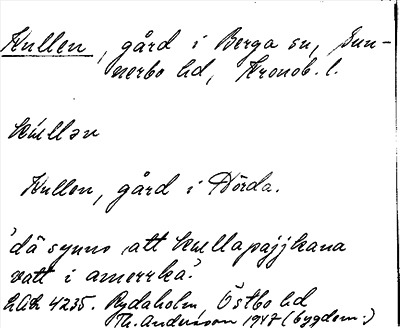 Kullen, gård i Berga sn, Sun-
nerbo hd, Kronob. l.
kúllən
Kullen, gård i Hörda.
'dä synns att kullapajjkana
vatt i amerrka.'
4235. Rydaholm Östbo hd
Th. Andersson 1947 (bygdem.)